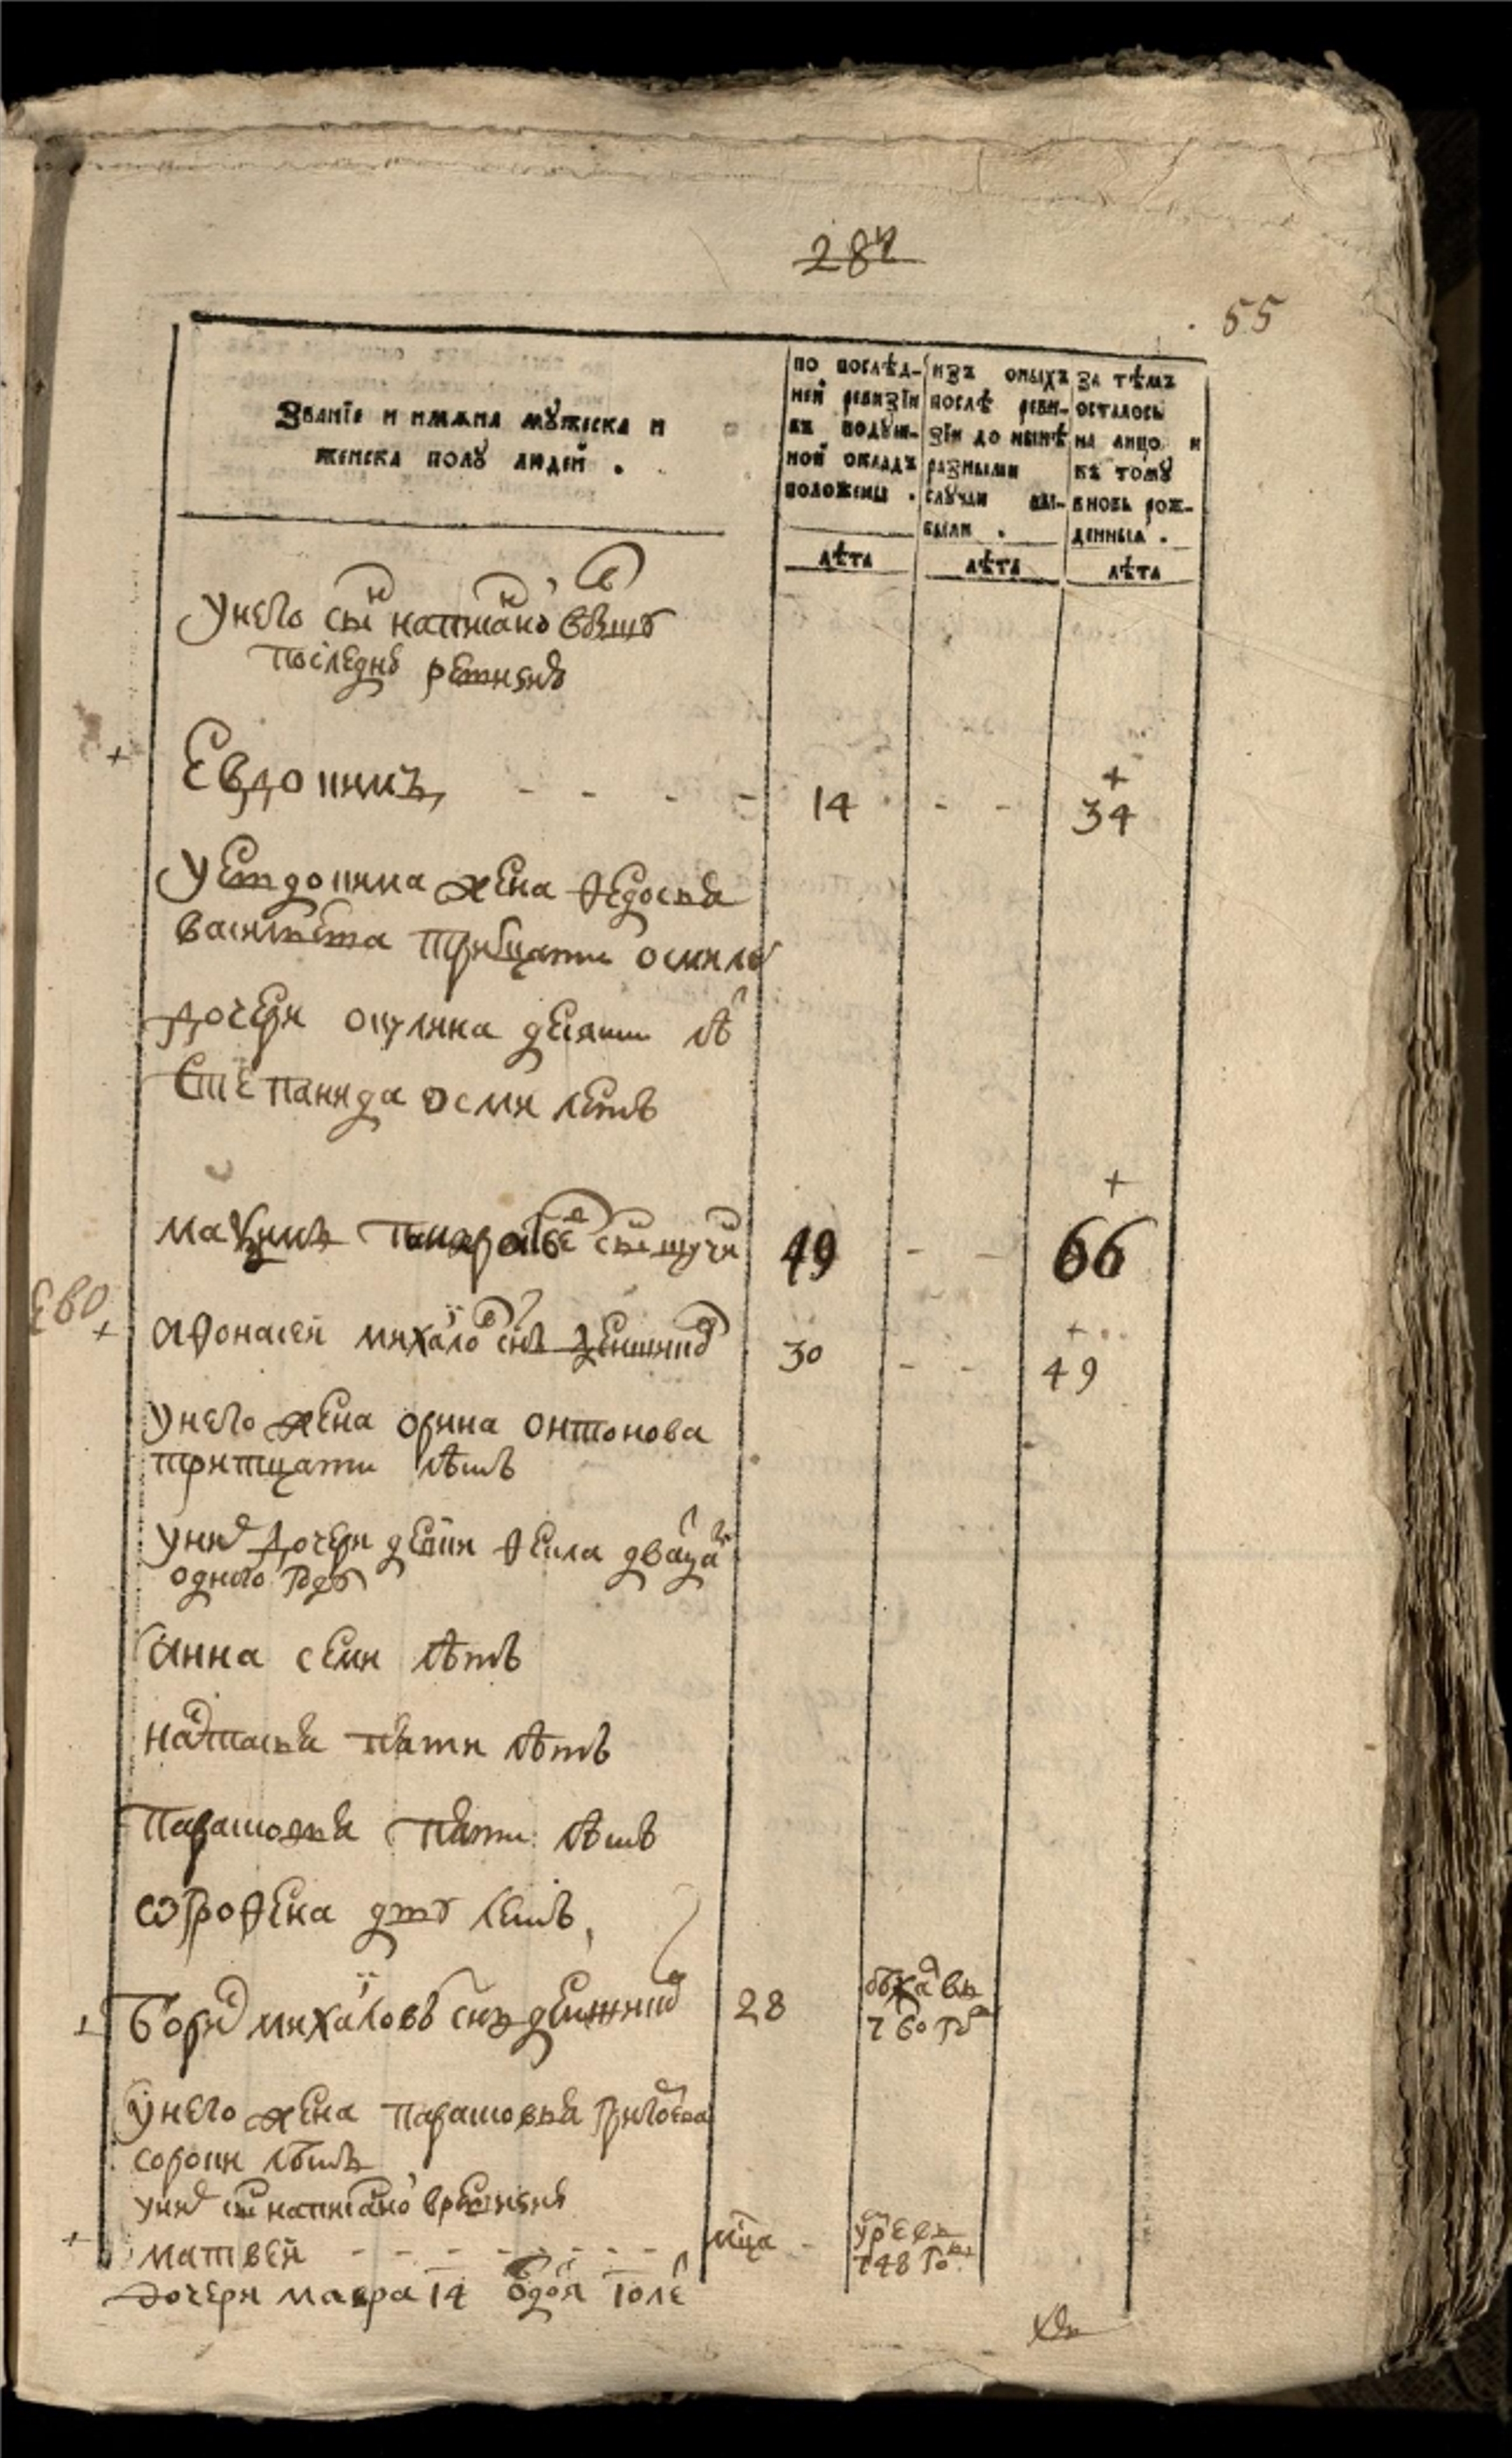 284
55
Званїе и имѧна мꙋжеска и
женска полꙋ людей .
по послѣд-
ней ревизїи
въ подꙋш-
ной окладъ
положены .
лѣта
изъ оныхъ
послѣ реви-
зїи до нынѣ
разными
слꙋчаи вы-
были .
лѣта
за тѣмъ
осталось
на лицо и
къ томꙋ
вновь рож-
денныѧ .
лѣта
У него снъ написанои в бывшую
последнею ревизию
Евдокимъ - - - - 14 - - 34
У Евдокима жена Федосья
Васильева тритцати осми летъ
дочери Окулина десяти лѣ
Степанида осми летъ
Максимъ снъ 49 - - 66
ево
Афонасей Михаило снъ 30 - - 49
У него жена Орина Онтонова
тритцати лѣтъ
У них дочери Фекла дватца
одного году
Анна семи лѣтъ
Настасья пяти лѣтъ
Парасковья пяти лѣтъ
Ѡгрофена дву летъ
Борис Михаиловъ снъ 28
760 го
У него жена Парасковья Григорева
сорока лѣтъ
У них снъ написанои в ревизию
Матвей - - - - - - - - мца -
умре в
748 го
дочери Мавра 14